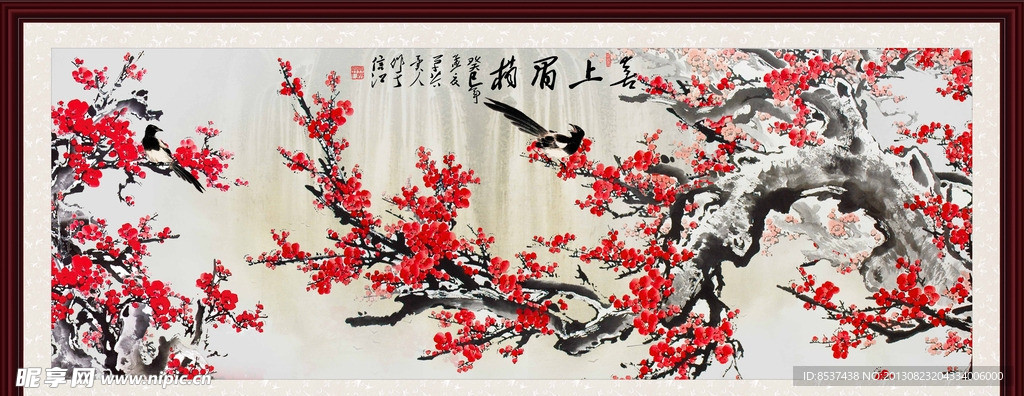 喜上眉梢
癸巳年
孟夏
作于
信江
昵享网 www.nipic.cn
ID:8537438 NO:20130823204334006000